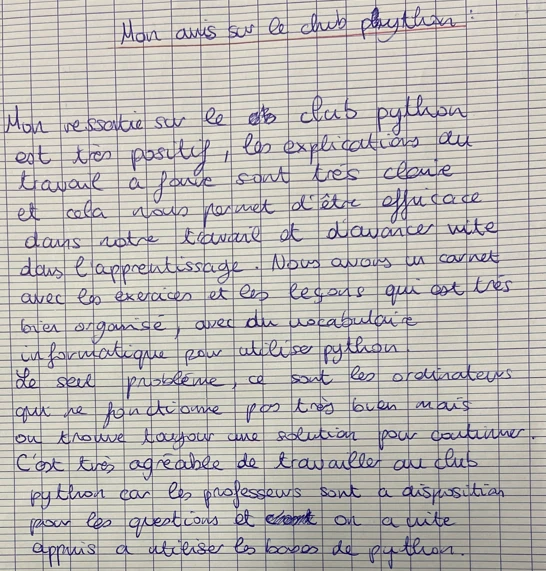 Mon avis sur le club python :
Mon ressortie sur le club python
est très positif, les explications du
travail a faire sont très claire
et cela nous permet d'être efficace
dans notre travail et d'avancer vite
dans l'apprentissage. Nous avons un carnet
avec les exercices et les leçons qui est très
bien organisé, avec du vocabulaire
informatique pour utiliser python.
Le seul problème, ce sont les ordinateurs
qui ne fonctionne pas très bien mais
on trouve toujour une solution pour continuer.
C'est très agréable de travailler au club
python car les professeurs sont a disposition
pour les questions et on a vite
appris a utiliser les bases de python.